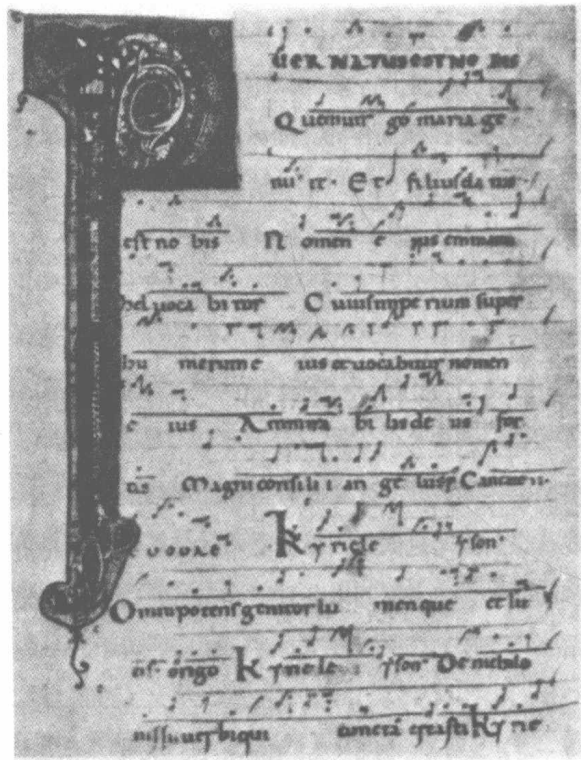 PUER NATUS EST NO BIS
Quem uir go maria ge
nu it. Et filius da tus
est no bis Nomen e ius emmanu
hel uoca bi tur Cuius impe rium super
hu merum e ius et uocabitur nomen
e ius Ammira bi lis de us for
tis Magni consi li i an ge lus
euouae Kyriele yson
Omnipotens genitor lu menque et lu
cis origo Kyriele yson De nichilo
iussu uerbi qui cuncta creasti Kyrie